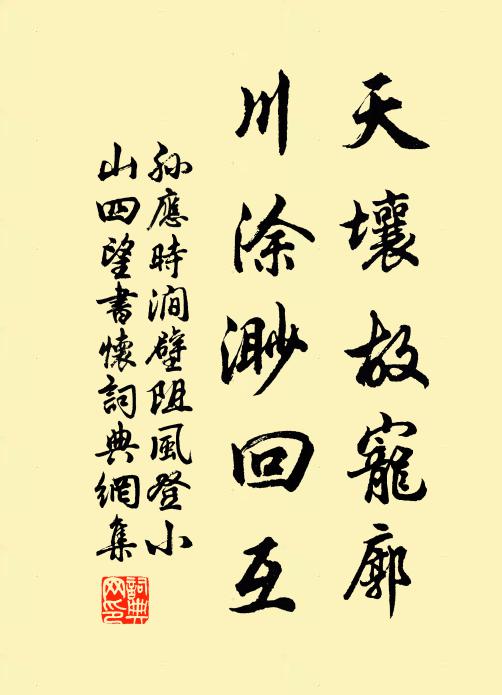 天壤故寵廓
川涂渺回互
孙應時澗壁阻風登小
山四望書懷詞典網集
詞典網印